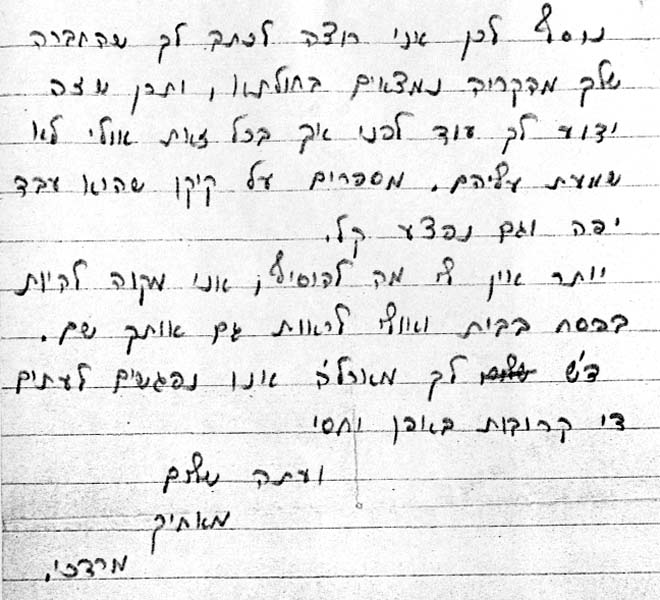 נוסף לכן אני רוצה לכתב לך שהחברה
שלך מהקריה נמצאים בחולתא, ותכן שזה
ידוע לך עוד לפני אך בכל זאת אולי לא
שמעת עליהם. מספרים על קיקו שהוא עבד
יפה וגם נפצע קל.
יותר אין לי מה להוסיף, אני מקוה להיות
בפסח בבית ואולי לראות גם אותך שם.
ד"ש לך מארל'ה אנו נפגשים לעתים
די קרובות באופן יחסי
ועתה שלום
מאחיך
מרדכי.